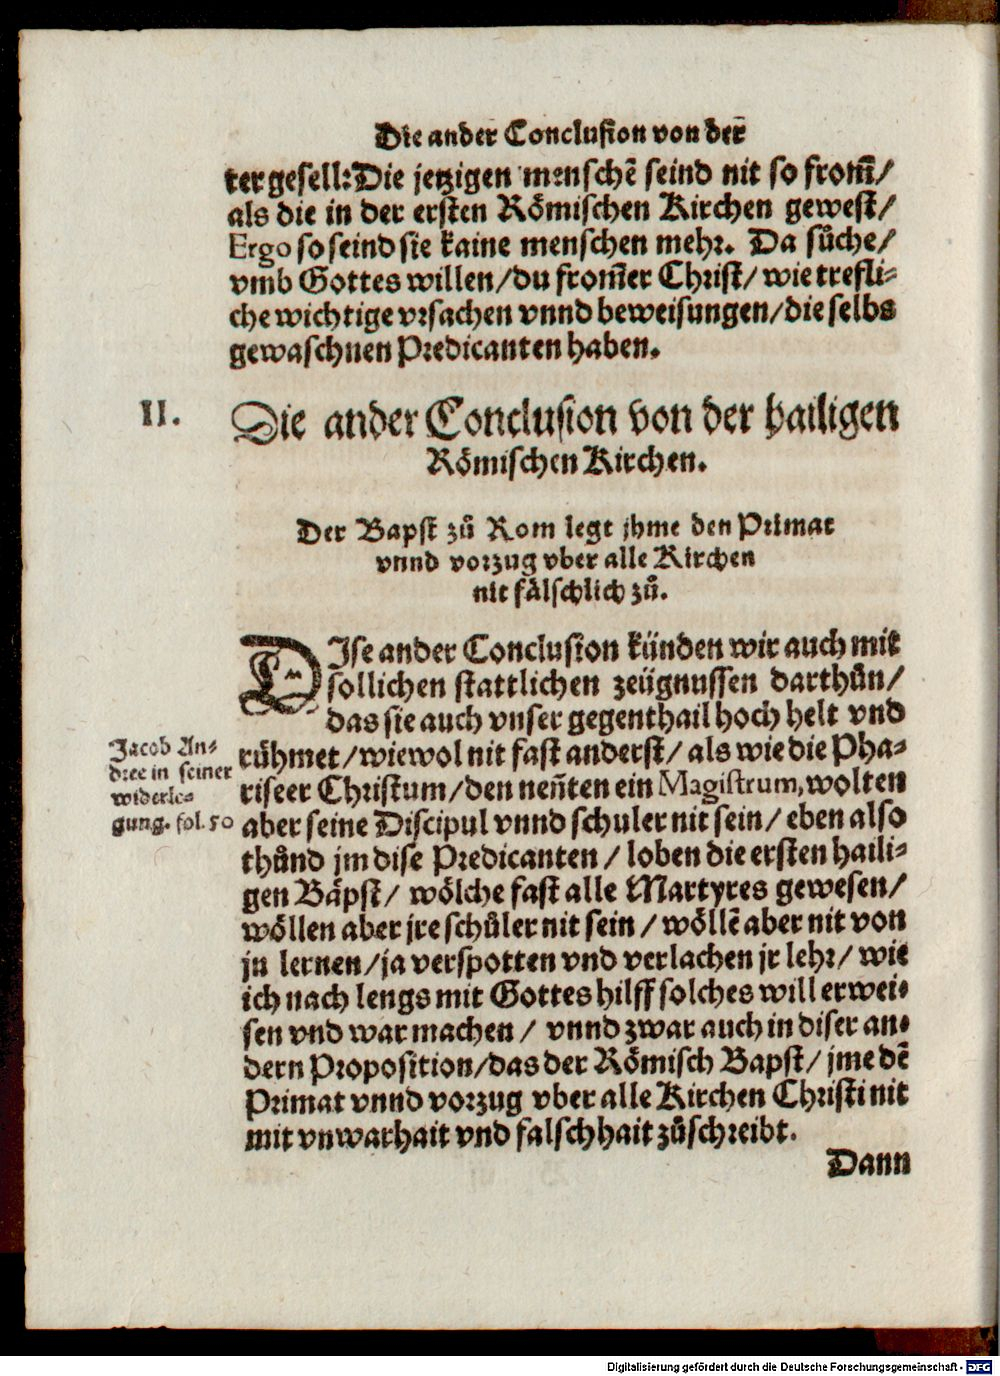 Die ander Conclusion von der
ter gesell: Die jetzigen menschē seind nit so from̄/
als die in der ersten Römischen Kirchen gewest/
Ergo so seind sie kaine menschen mehr. Da sůche/
vmb Gottes willen/ du from̄er Christ/ wie trefli-
che wichtige vrsachen vnnd beweisungen/ die selbs
gewaschnen Predicanten haben.
II. Die ander Conclusion von der hailigen
Römischen Kirchen.
Der Bapst zů Rom legt jhme den Primat
vnnd vorzug vber alle Kirchen
nit fälschlich zů.
DIse ander Conclusion künden wir auch mit
sollichen stattlichen zeügnussen darthůn/
das sie auch vnser gegenthail hoch helt vnd
růhmet/ wiewol nit fast anderst/ als wie die Pha-
riseer Christum/ den nen̄ten ein Magistrum, wolten
aber seine Discipul vnnd schuler nit sein/ eben also
thůnd jm dise Predicanten/ loben die ersten haili-
gen Bäpst/ wölche fast alle Martyres gewesen/
wöllen aber jre schůler nit sein/ wöllē aber nit von
jn lernen/ ja verspotten vnd verlachen jr lehr/ wie
ich nach lengs mit Gottes hilff solches will erwei-
sen vnd war machen/ vnnd zwar auch in diser an-
dern Proposition/ das der Römisch Bapst/ jme dē
Primat vnnd vorzug vber alle Kirchen Christi nit
mit vnwarhait vnd falschhait zůschreibt.
Dann
Jacob An-
dree in seiner
widerle-
gung. fol. 50
Digitalisierung gefördert durch die Deutsche Forschungsgemeinschaft - DFG